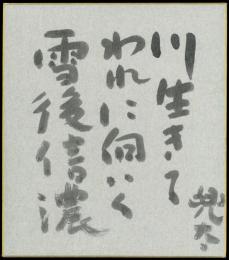 川生きて
われに向いく
雪後信濃
兜太